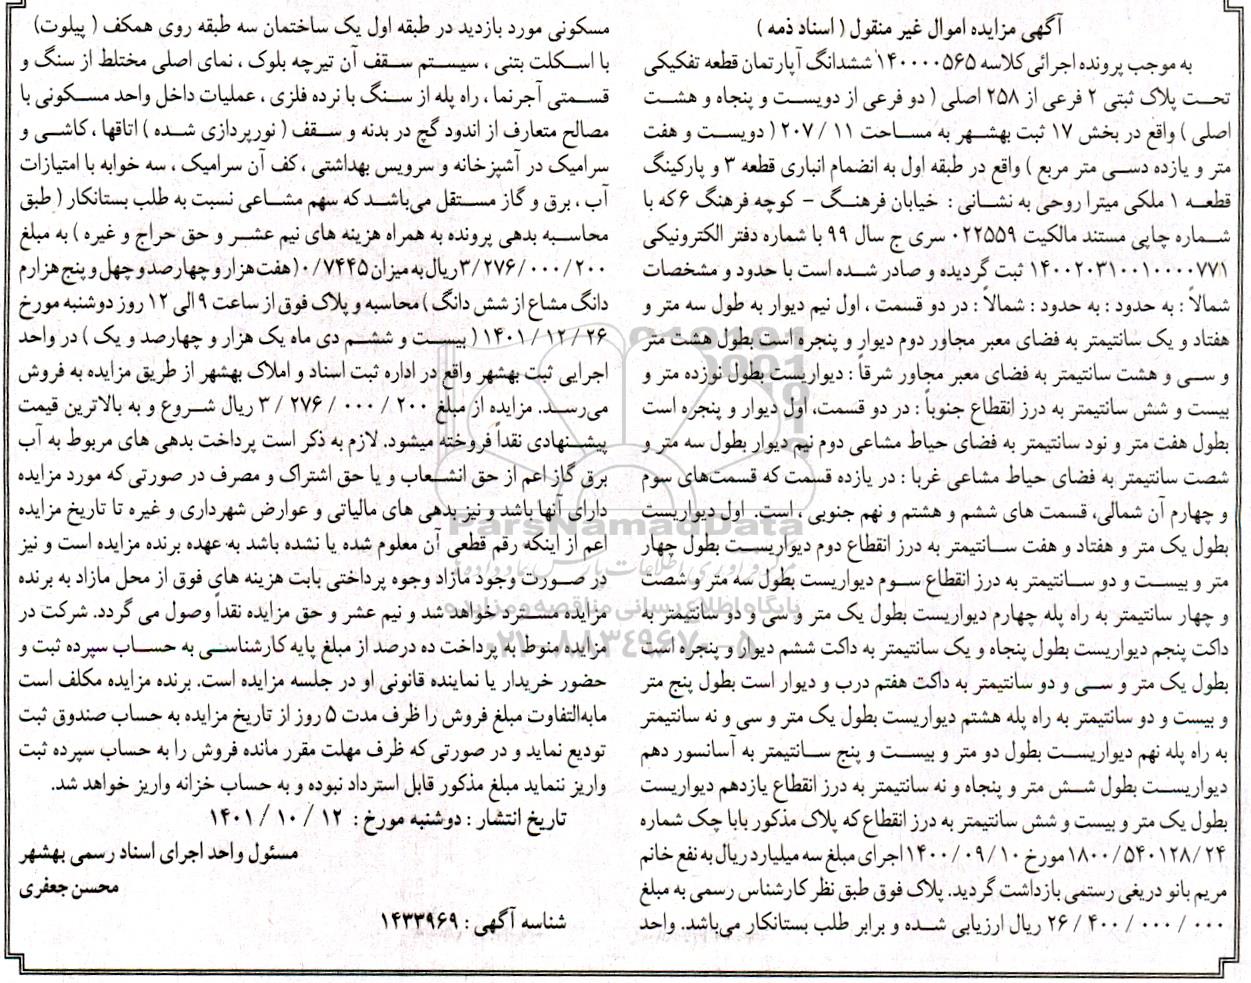 آگهی مزایده اموال غیر منقول ( اسناد ذمه )
به موجب پرونده اجرائی کلاسه ۱۴۰۰۰۰۵۶۵ ششدانگ آپارتمان قطعه تفکیکی
تحت پلاک ثبتی ۲ فرعی از ۲۵۸ اصلی ( دو فرعی از دویست و پنجاه و هشت
اصلی ) واقع در بخش ۱۷ ثبت بهشهر به مساحت ۱۱ / ۲۰۷ ( دویست و هفت
متر و یازده دسی متر مربع ) واقع در طبقه اول به انضمام انباری قطعه ۳ و پارکینگ
قطعه ۱ ملکی میترا روحی به نشانی : خیابان فرهنگ – کوچه فرهنگ ۶ که با
شماره چاپی مستند مالکیت ۰۲۲۵۵۹ سری ج سال ۹۹ با شماره دفتر الکترونیکی
۱۴۰۰۲۰۳۱۰۰۱۰۰۰۰۷۷۱ ثبت گردیده و صادر شده است با حدود و مشخصات
شمالاً : به حدود : به حدود : شمالاً : در دو قسمت ، اول نیم دیوار به طول سه متر و
هفتاد و یک سانتیمتر به فضای معبر مجاور دوم دیوار و پنجره است بطول هشت متر
و سی و هشت سانتیمتر به فضای معبر مجاور شرقاً : دیواریست بطول نوزده متر و
بیست و شش سانتیمتر به درز انقطاع جنوباً : در دو قسمت، اول دیوار و پنجره است
بطول هفت متر و نود سانتیمتر به فضای حیاط مشاعی دوم نیم دیوار بطول سه متر و
شصت سانتیمتر به فضای حیاط مشاعی غربا : در یازده قسمت که قسمت‌های سوم
و چهارم آن شمالی، قسمت های ششم و هشتم و نهم جنوبی ، است. اول دیواریست
بطول یک متر و هفتاد و هفت سانتیمتر به درز انقطاع دوم دیواریست بطول چهار
متر و بیست و دو سانتیمتر به درز انقطاع سوم دیواریست بطول سه متر و شصت
و چهار سانتیمتر به راه پله چهارم دیواریست بطول یک متر و سی و دو سانتیمتر به
داکت پنجم دیواریست بطول پنجاه و یک سانتیمتر به داکت ششم دیوار و پنجره است
بطول یک متر و سی و دو سانتیمتر به داکت هفتم درب و دیوار است بطول پنج متر
و بیست و دو سانتیمتر به راه پله هشتم دیواریست بطول یک متر و سی و نه سانتیمتر
به راه پله نهم دیواریست بطول دو متر و بیست و پنج سانتیمتر به آسانسور دهم
دیواریست بطول شش متر و پنجاه و نه سانتیمتر به درز انقطاع یازدهم دیواریست
بطول یک متر و بیست و شش سانتیمتر به درز انقطاع که پلاک مذکور بابا چک شماره
۱۸۰۰/۵۴۰۱۲۸/۲۴ مورخ ۱۴۰۰/۰۹/۱۰ اجرای مبلغ سه میلیارد ریال به نفع خانم
مریم بانو دریغی رستمی بازداشت گردید. پلاک فوق طبق نظر کارشناس رسمی به مبلغ
۰۰۰ / ۰۰۰ / ۴۰۰ / ۲۶ ریال ارزیابی شده و برابر طلب بستانکار می‌باشد. واحد
مسکونی مورد بازدید در طبقه اول یک ساختمان سه طبقه روی همکف ( پیلوت)
با اسکلت بتنی ، سیستم سقف آن تیرچه بلوک ، نمای اصلی مختلط از سنگ و
قسمتی آجرنما ، راه پله از سنگ با نرده فلزی ، عملیات داخل واحد مسکونی با
مصالح متعارف از اندود گچ در بدنه و سقف ( نورپردازی شده ) اتاقها ، کاشی و
سرامیک در آشپزخانه و سرویس بهداشتی ، کف آن سرامیک ، سه خوابه با امتیازات
آب ، برق و گاز مستقل می‌باشد که سهم مشاعی نسبت به طلب بستانکار ( طبق
محاسبه بدهی پرونده به همراه هزینه های نیم عشر و حق حراج و غیره ) به مبلغ
۳/۲۷۶/۰۰۰/۲۰۰ ریال به میزان ۰/۷۴۴۵ (هفت هزار و چهارصد و چهل و پنج هزارم
دانگ مشاع از شش دانگ ) محاسبه و پلاک فوق از ساعت ۹ الی ۱۲ روز دوشنبه مورخ
۲۶ / ۱۲ / ۱۴۰۱ ( بیست و ششم دی ماه یک هزار و چهارصد و یک ) در واحد
اجرایی ثبت بهشهر واقع در اداره ثبت اسناد و املاک بهشهر از طریق مزایده به فروش
می‌رسد. مزایده از مبلغ ۲۰۰ / ۰۰۰ / ۲۷۶ / ۳ ریال شروع و به بالاترین قیمت
پیشنهادی نقداً فروخته میشود. لازم به ذکر است پرداخت بدهی های مربوط به آب
برق گاز اعم از حق انشعاب و یا حق اشتراک و مصرف در صورتی که مورد مزایده
دارای آنها باشد و نیز بدهی های مالیاتی و عوارض شهرداری و غیره تا تاریخ مزایده
اعم از اینکه رقم قطعی آن معلوم شده یا نشده باشد به عهده برنده مزایده است و نیز
در صورت وجود مازاد وجوه پرداختی بابت هزینه های فوق از محل مازاد به برنده
مزایده مسترد خواهد شد و نیم عشر و حق مزایده نقداً وصول می گردد. شرکت در
مزایده منوط به پرداخت ده درصد از مبلغ پایه کارشناسی به حساب سپرده ثبت و
حضور خریدار یا نماینده قانونی او در جلسه مزایده است. برنده مزایده مکلف است
مابه‌التفاوت مبلغ فروش را ظرف مدت ۵ روز از تاریخ مزایده به حساب صندوق ثبت
تودیع نماید و در صورتی که ظرف مهلت مقرر مانده فروش را به حساب سپرده ثبت
واریز ننماید مبلغ مذکور قابل استرداد نبوده و به حساب خزانه واریز خواهد شد.
تاریخ انتشار : دوشنبه مورخ : ۱۲ / ۱۰ / ۱۴۰۱
مسئول واحد اجرای اسناد رسمی بهشهر
محسن جعفری
شناسه آگهی : ۱۴۳۳۹۶۹
ParsNamadData
پایگاه اطلاع رسانی مناقصه و مزایده
۰۲۱-۸۸۳۴۹۶۷۰-۵